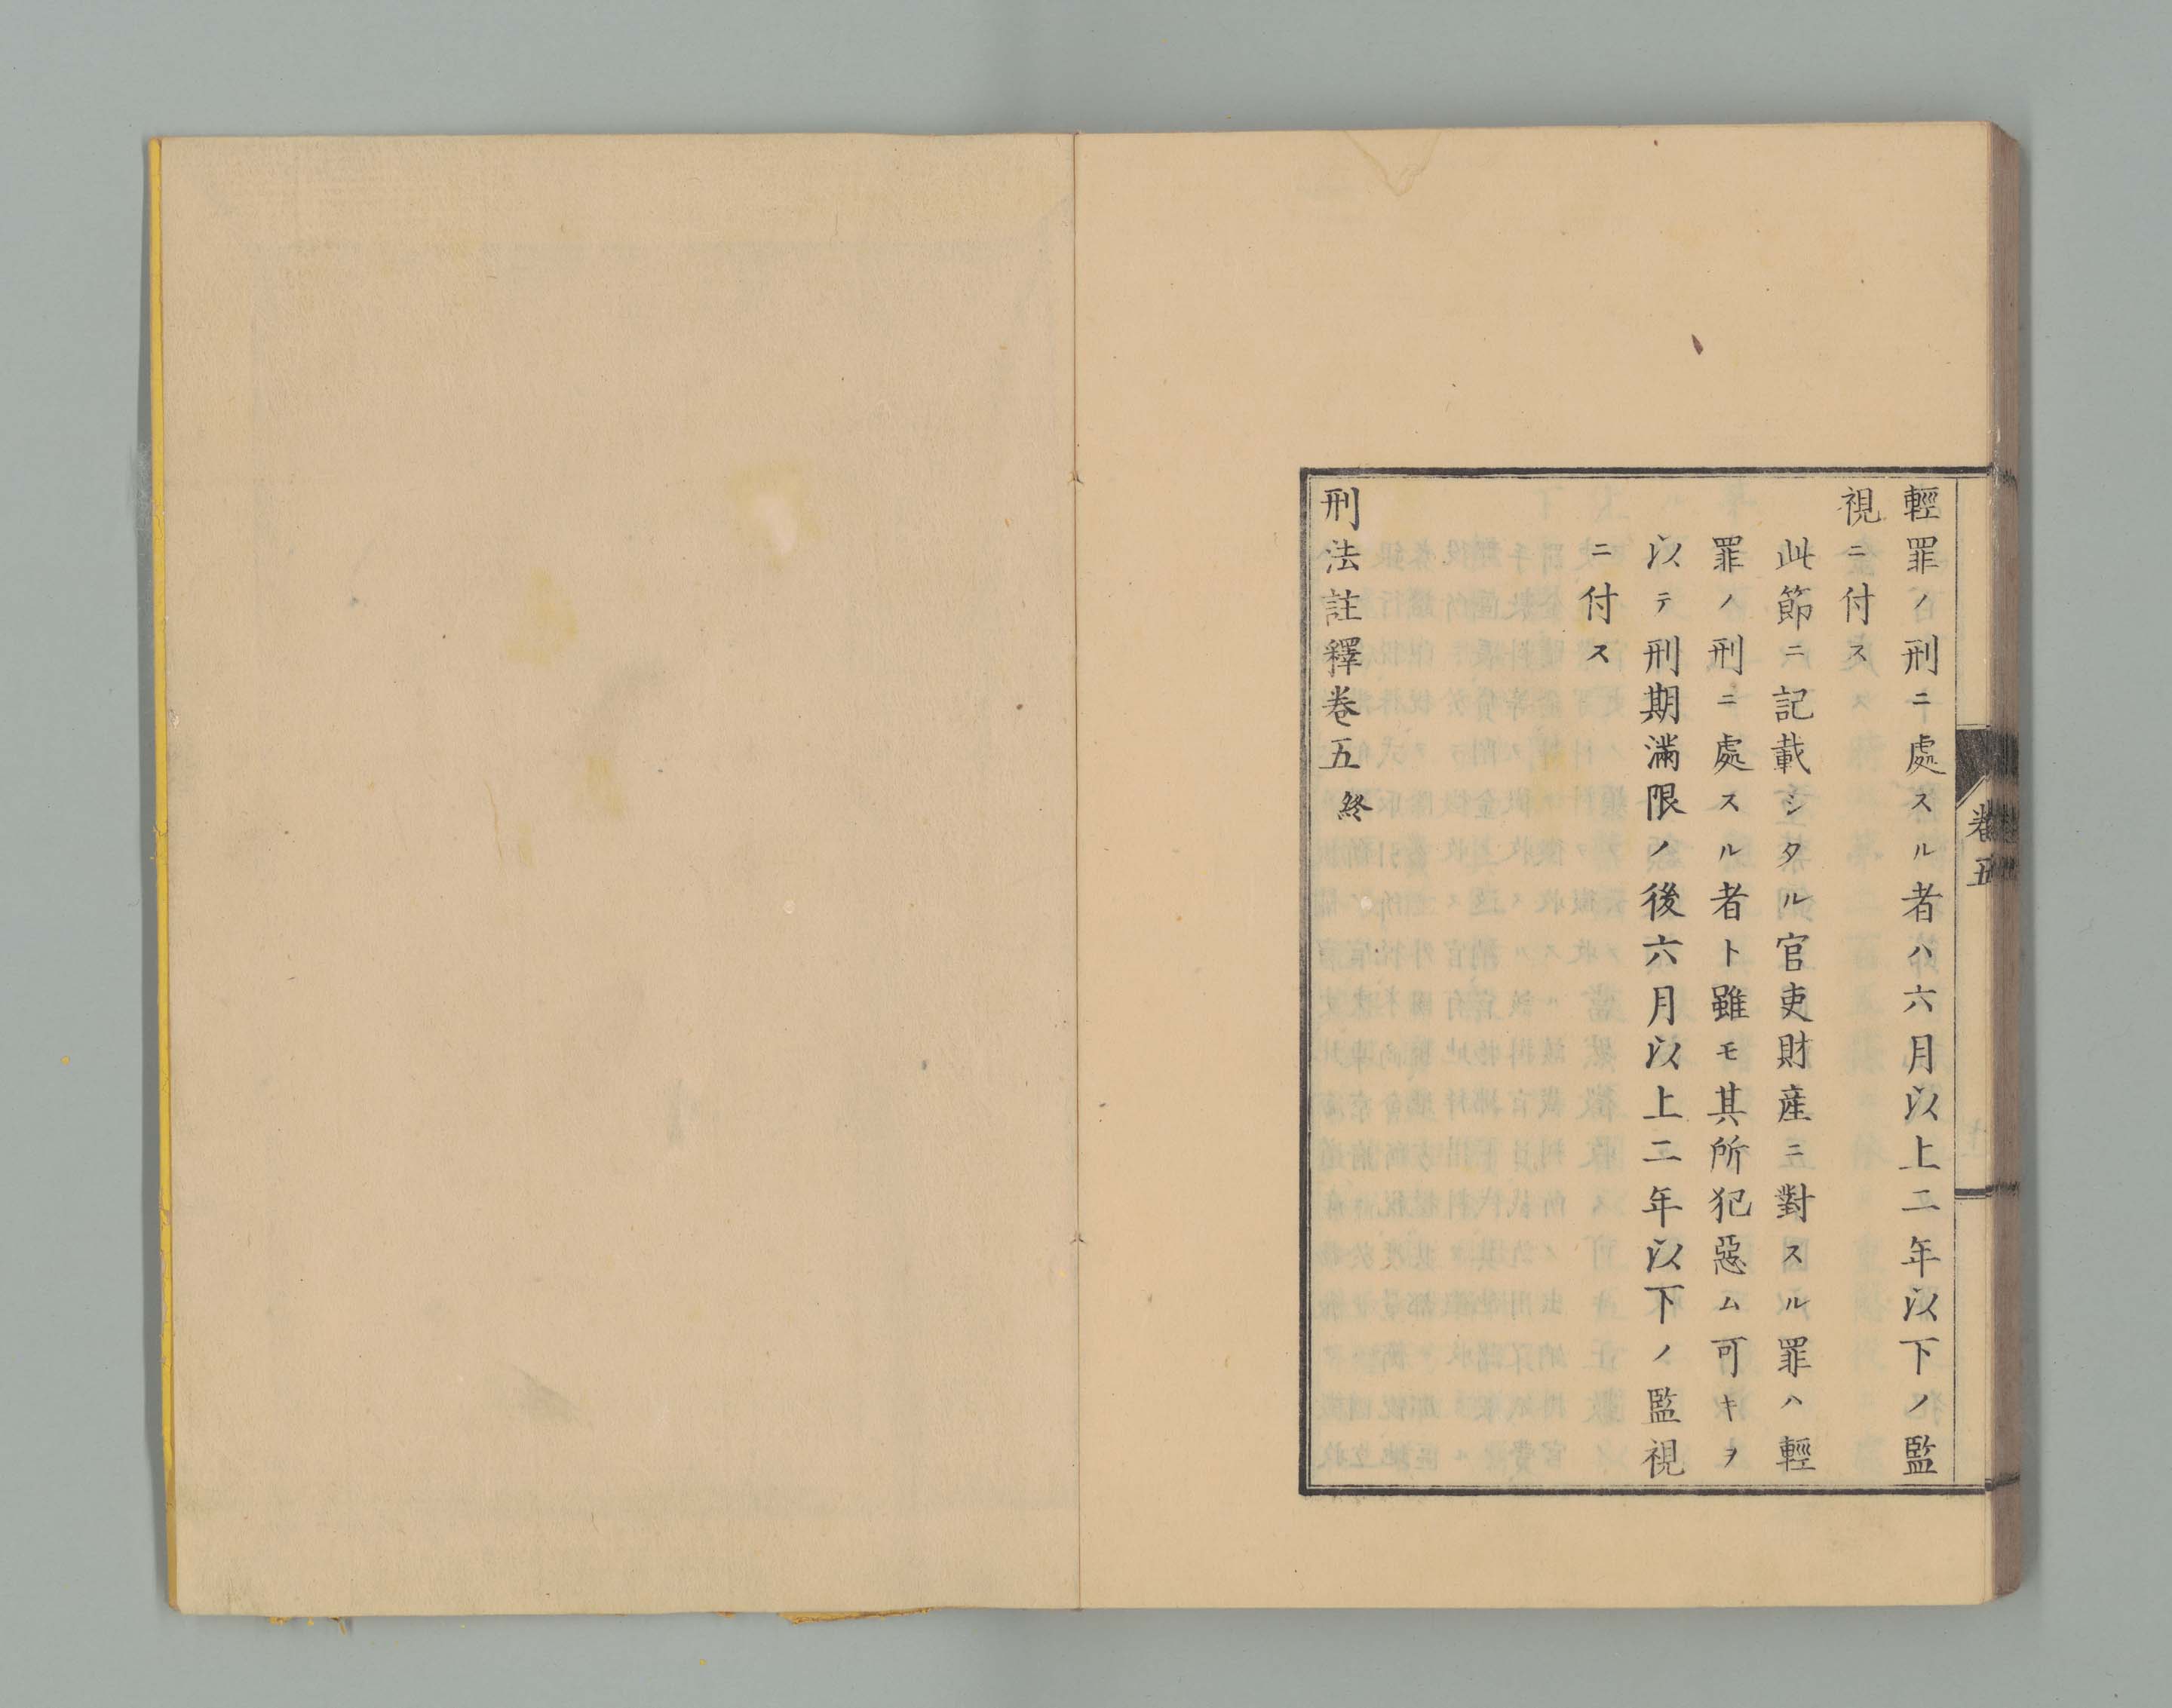 輕罪ノ刑ニ處スル者ハ六月以上二年以下ノ監
視ニ付ス
此節ニ記載シタル官吏財産ニ對スル罪ハ輕
罪ノ刑ニ處スル者ト雖モ其所犯惡ム可キヲ
以テ刑期滿限ノ後六月以上二年以下ノ監視
ニ付ス
刑法註釋卷五終
卷五